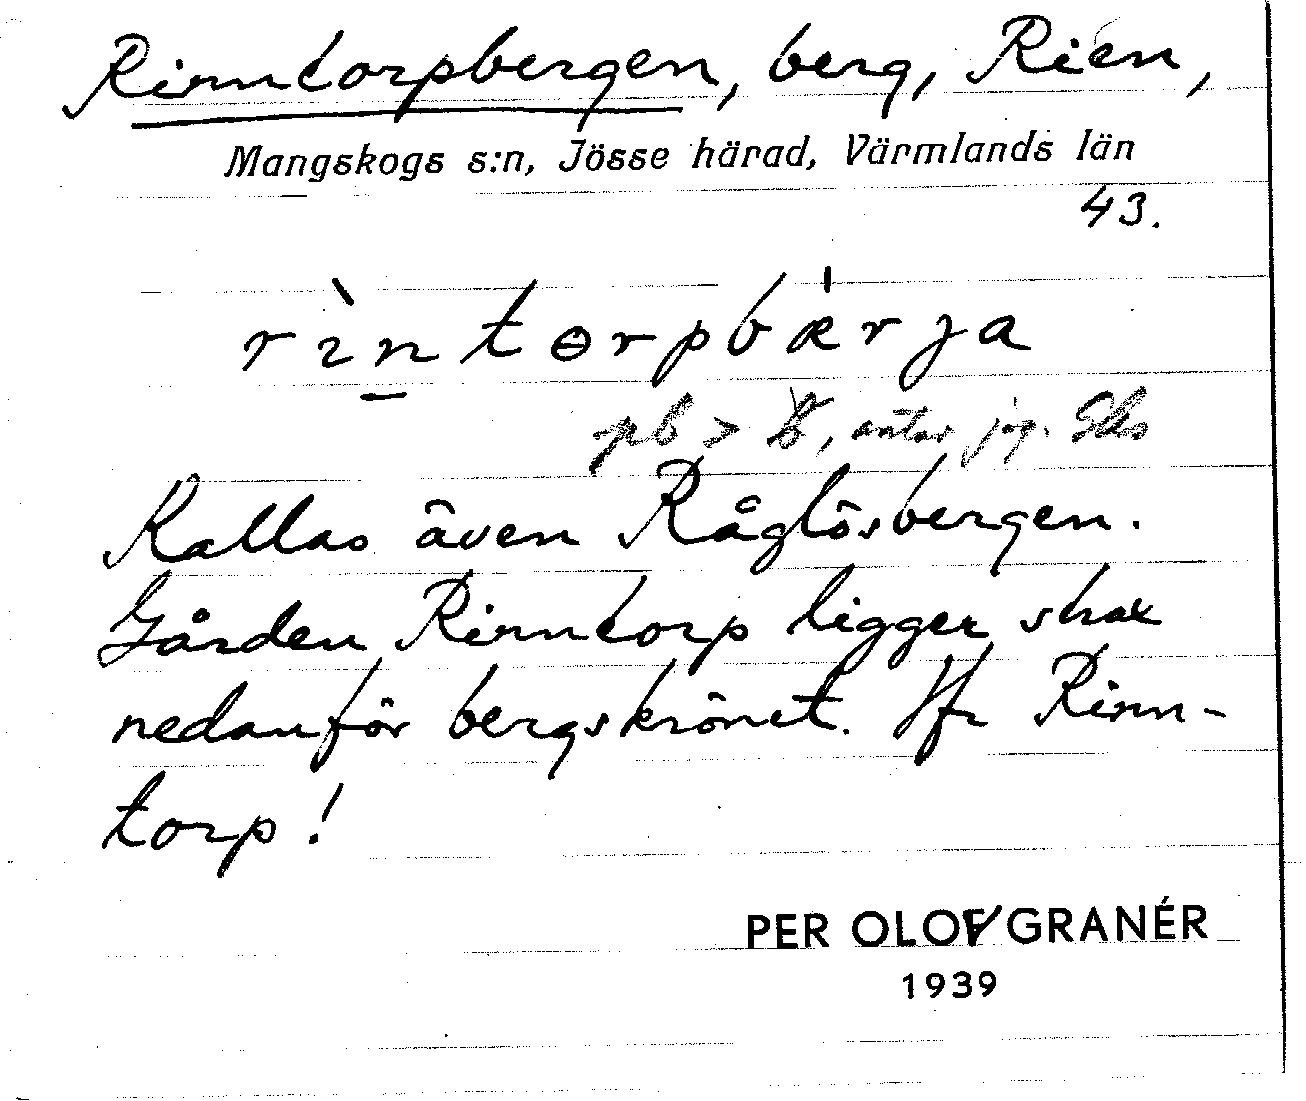 Rinntorpbergen, berg, Rien,
Mangskogs s:n, Jösse härad, Värmlands län
43.
rìntɵrpbærja
pb > b, antar jag.
Kallas även Råglösbergen.
Gården Rinntorp ligger strax
nedanför bergskrönet. Jfr Rinn-
torp!
PER OLOF GRANÉR
1939